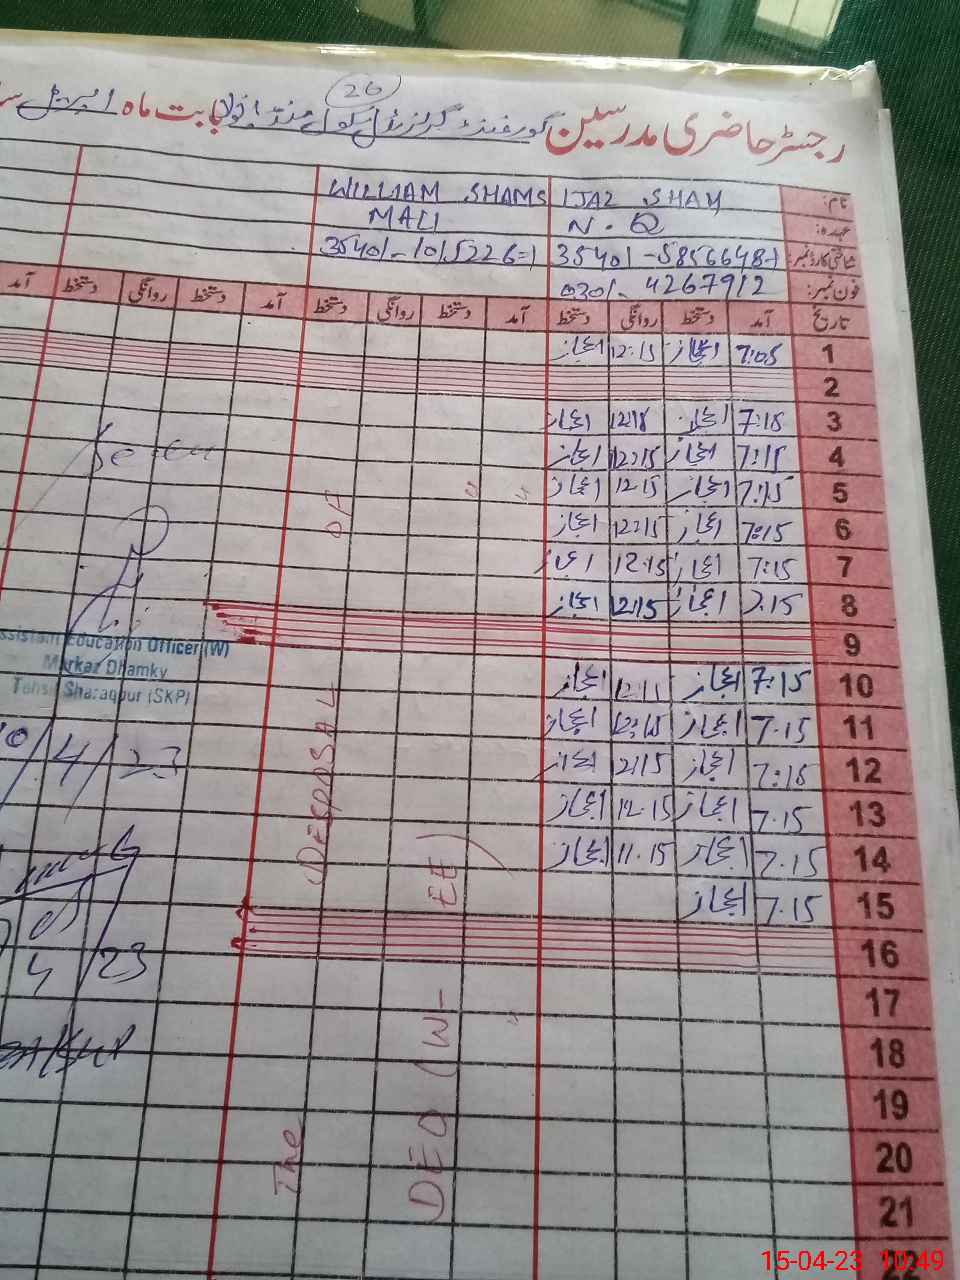 26
رجسٹر حاضری مدرسین گورنمنٹ گرلز سکول بابت ماہ اپریل
نام: IJAZ SHAM WILLIAM SHAMS
عہدہ: N.Q MALI
شناختی کارڈ نمبر: 35401-5856648-1 35401-1015226-1
فون نمبر: 0301-4267912
تاریخ آمد دستخط روانگی دستخط آمد دستخط روانگی دستخط آمد دستخط روانگی دستخط آمد
1 7:05 اعجاز 12:15 اعجاز
2
3 7:15 اعجاز 12:15 اعجاز
4 7:15 اعجاز 12:15 اعجاز
5 7:15 اعجاز 12:15 اعجاز
6 7:15 اعجاز 12:15 اعجاز
7 7:15 اعجاز 12:15 اعجاز
8 7:15 اعجاز 12:15 اعجاز
9
10 7:15 اعجاز 12:15 اعجاز
11 7.15 اعجاز 12:15 اعجاز
12 7:15 اعجاز 12:15 اعجاز
13 7.15 اعجاز 12.15 اعجاز
14 7.15 اعجاز 11.15 اعجاز
15 7.15 اعجاز
16
17
18
19
20
21
The DESPOSAL OF
DEO (W-EE)
Assistant Education Officer (W)
Markaz Dhamky
Tehsil Sharaqpur (SKP)
10/4/23
4/23
15-04-23 10:49